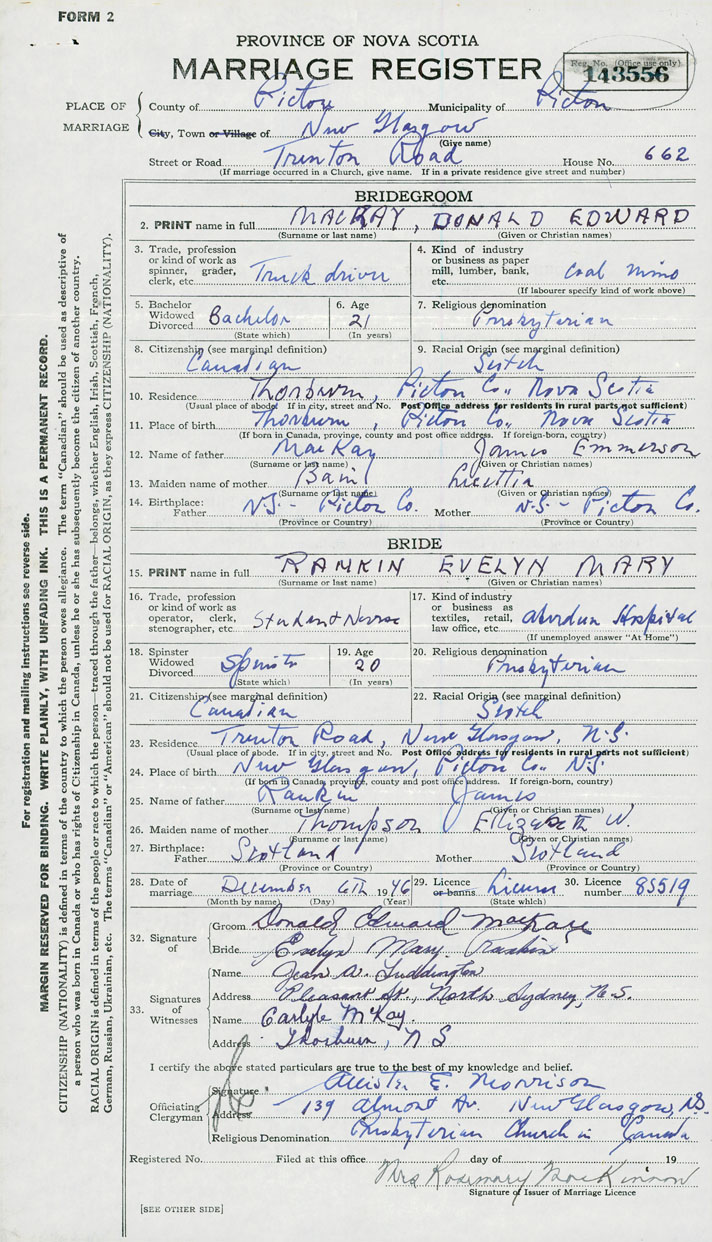 FORM 2
PROVINCE OF NOVA SCOTIA
MARRIAGE REGISTER
Reg. No. (Office use only)
143556
PLACE OF MARRIAGE
County of Pictou Municipality of Pictou
City, Town or Village of New Glasgow
(Give name)
Street or Road Trenton Road House No. 662
(If marriage occurred in a Church, give name. If in a private residence give street and number)
BRIDEGROOM
2. PRINT name in full MACKAY, DONALD EDWARD
(Surname or last name) (Given or Christian names)
3. Trade, profession or kind of work as spinner, grader, clerk, etc. Truck driver
4. Kind of industry or business as paper mill, lumber, bank, etc. Coal mine
(If labourer specify kind of work above)
5. Bachelor Widowed Divorced Bachelor
(State which)
6. Age 21
(In years)
7. Religious denomination Presbyterian
8. Citizenship (see marginal definition) Canadian
9. Racial Origin (see marginal definition) Scotch
10. Residence Thorburn, Pictou Co., Nova Scotia
(Usual place of abode. If in city, street and No. Post Office address for residents in rural parts not sufficient)
11. Place of birth Thorburn, Pictou Co., Nova Scotia
(If born in Canada, province, county and post office address. If foreign-born, country)
12. Name of father MacKay James Emmerson
(Surname or last name) (Given or Christian names)
13. Maiden name of mother Bain
(Surname or last name) (Given or Christian names)
14. Birthplace: Father N.S. - Pictou Co. Mother N.S. - Pictou Co.
(Province or Country) (Province or Country)
BRIDE
15. PRINT name in full RANKIN EVELYN MARY
(Surname or last name) (Given or Christian names)
16. Trade, profession or kind of work as operator, clerk, stenographer, etc. Student Nurse
17. Kind of industry or business as textiles, retail, law office, etc. Aberdeen Hospital
(If unemployed answer "At Home")
18. Spinster Widowed Divorced Spinster
(State which)
19. Age 20
(In years)
20. Religious denomination Presbyterian
21. Citizenship (see marginal definition) Canadian
22. Racial Origin (see marginal definition) Scotch
23. Residence Trenton Road, New Glasgow, N.S.
(Usual place of abode. If in city, street and No. Post Office address for residents in rural parts not sufficient)
24. Place of birth New Glasgow, Pictou Co. N.S.
(If born in Canada, province, county and post office address. If foreign-born, country)
25. Name of father Rankin James
(Surname or last name) (Given or Christian names)
26. Maiden name of mother Thompson Elizabeth W.
(Surname or last name) (Given or Christian names)
27. Birthplace: Father Scotland Mother Scotland
(Province or Country) (Province or Country)
28. Date of marriage December 6th 1946
(Month by name) (Day) (Year)
29. Licence or banns License
30. Licence number 85519
32. Signature of
Groom Donald Edward MacKay
Bride Evelyn Mary Rankin
33. Signatures of Witnesses
Name Jean A. Luddington
Address Pleasant St., North Sydney, N.S.
Name Carlyle McKay.
Address Thorburn, N S
I certify the above stated particulars are true to the best of my knowledge and belief.
Officiating Clergyman
Signature Allister E. Morrison
Address 139 Almont Av. New Glasgow, N.S.
Religious Denomination Presbyterian Church in Canada
Registered No. Filed at this office day of 19
Mrs Rosemary MacKinnon
Signature of Issuer of Marriage Licence
[SEE OTHER SIDE]
For registration and mailing instructions see reverse side.
MARGIN RESERVED FOR BINDING. WRITE PLAINLY, WITH UNFADING INK. THIS IS A PERMANENT RECORD.
CITIZENSHIP (NATIONALITY) is defined in terms of the country to which the person owes allegiance. The term "Canadian" should be used as descriptive of
a person who was born in Canada or who has rights of Citizenship in Canada, unless he or she has subsequently become the citizen of another country.
RACIAL ORIGIN is defined in terms of the people or race to which the person—traced through the father—belongs, whether English, Irish, Scottish, French,
German, Russian, Ukrainian, etc. The terms "Canadian" or "American" should not be used for RACIAL ORIGIN, as they express CITIZENSHIP (NATIONALITY).